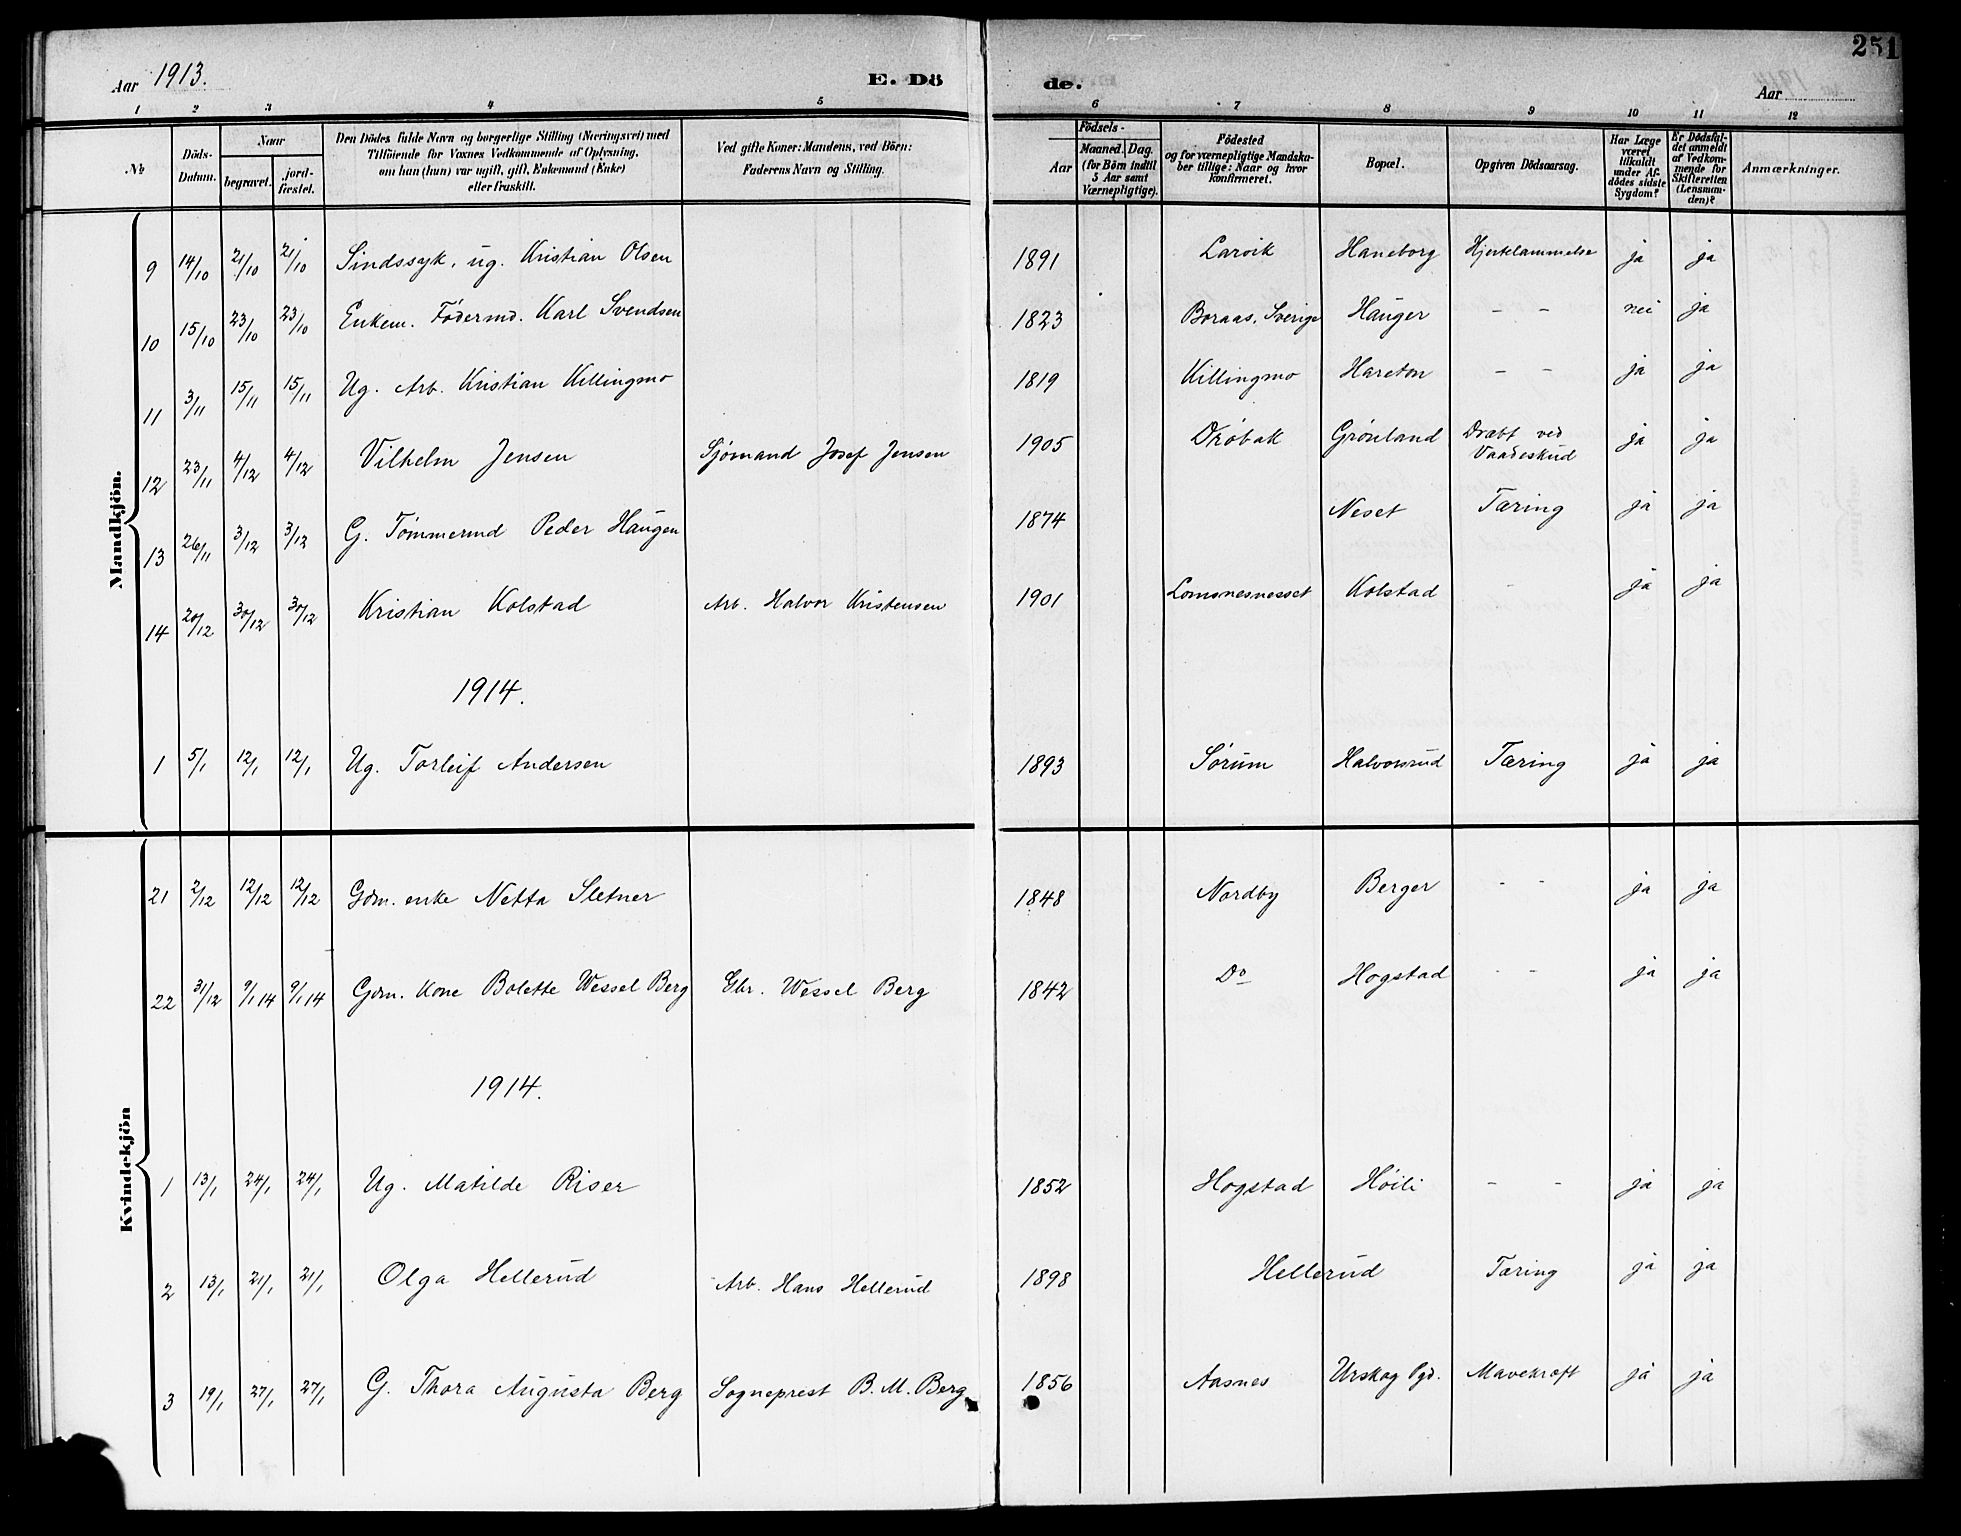 251
Aar 1913.
E. Dö de.
Aar
1 2 3 4 5 6 7 8 9 10 11 12
No
Döds-Datum.
Naar
begravet.
jord-fæstet.
Den Dödes fulde Navn og borgerlige Stilling (Næringsvei) med
Tilföiende for Voxnes Vedkommende af Oplysning,
om han (hun) var ugift, gift, Enkemand (Enke)
eller fraskilt.
Ved gifte Koner: Mandens, ved Börn:
Faderens Navn og Stilling.
Födsels-
Aar
Maaned. Dag.
(for Börn indtil
5 Aar samt
Værnepligtige).
Födested
og for værnepligtige Mandska-
ber tillige: Naar og hvor
konfirmeret.
Bopæl.
Opgiven Dödsaarsag.
Har Læge
været
tilkaldt
under Af-
dödes sidste
Sygdom?
Er Dödsfal-
det anmeldt
af Vedkom-
mende for
Skifteretten
(Lensman-
den)?
Anmærkninger.
Mandkjön.
9 14/10 21/10 21/10 Sindssyk, ug. Kristian Olsen 1891 Larvik Haneborg Hjertelammelse ja ja
10 15/10 23/10 23/10 Enkem. Födermd. Karl Svendsen 1823 Boraas, Sverige Hauger - - nei ja
11 3/11 15/11 15/11 Ug. Arb. Kristian Killingmo 1819 Killingmo Hareton - - ja ja
12 23/11 4/12 4/12 Vilhelm Jensen Sjømand Josef Jensen 1905 Drøbak Grønland Dræbt ved Vaadeskud ja ja
13 26/11 3/12 3/12 G. Tømmermd Peder Haugen 1874 Neset Tæring ja ja
14 20/12 30/12 30/12 Kristian Kolstad Arb. Halvor Kristensen 1901 Lomsnesnesset Kolstad - ja ja
1914.
1 5/1 12/1 12/1 Ug. Torleif Andersen 1893 Sørum Halvorsrud Tæring ja ja
Kvindekjön
21 2/12 12/12 12/12 Gdm. enke Netta Sletner 1848 Nordby Berger - - ja ja
22 31/12 9/1 14 9/1 14 Gdm. Kone Bolette Wessel Berg Gbr. Wessel Berg 1842 Do Hogstad - - ja ja
1914.
1 13/1 24/1 24/1 Ug. Matilde Riser 1852 Hogstad Høili - - ja ja
2 13/1 21/1 21/1 Olga Hellerud Arb. Hans Hellerud 1898 Hellerud Tæring ja ja
3 19/1 27/1 27/1 G. Thora Augusta Berg Sogneprest B. M. Berg 1856 Aasnes Urskog Pgd. Mavekræft ja ja